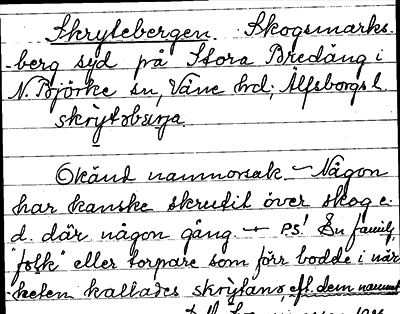 Skrytebergen. Skogsmarks-
-berg syd på Stora Bredäng i
N. Björke sn, Väne hd; Älfsborgs l.
skrỳtəbærja.
Okänd namnorsak – Någon
har kanske skrutit över skog e.
d. där någon gång. – PS! En familj,
"folk" eller torpare som förr bodde i när
-heten kallades skrỳtanə, eft. dem namnet